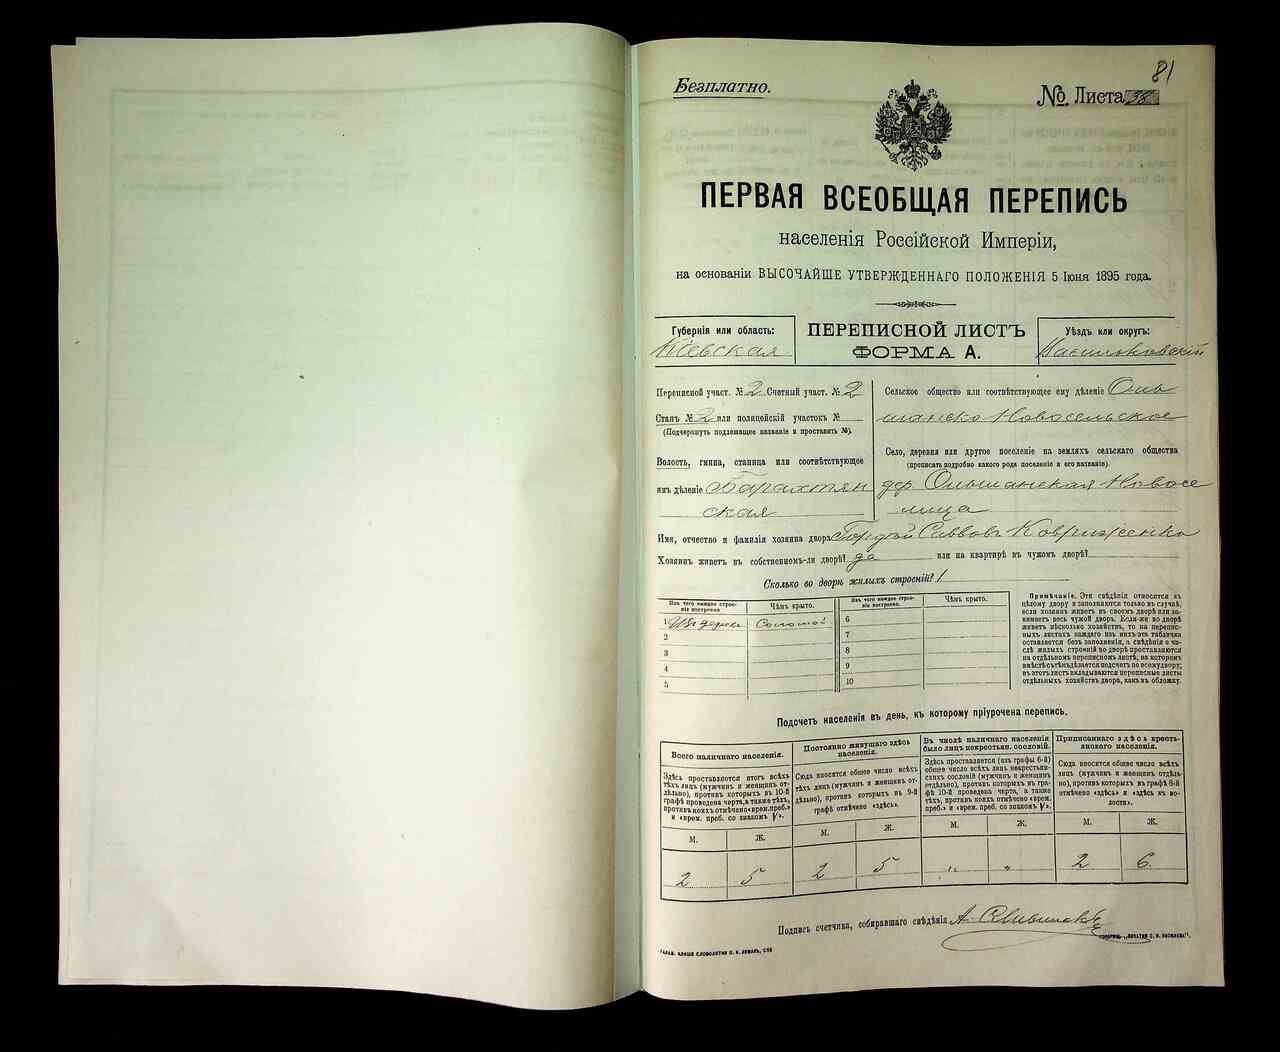 81
Безплатно.
№ Листа 38
ПЕРВАЯ ВСЕОБЩАЯ ПЕРЕПИСЬ
населенія Россійской Имперіи,
на основаніи ВЫСОЧАЙШЕ УТВЕРЖДЕННАГО ПОЛОЖЕНІЯ 5 Іюня 1895 года.
Губернія или область:
Кіевская
ПЕРЕПИСНОЙ ЛИСТЪ
ФОРМА А.
Уѣздъ или округъ:
Васильковскій
Переписной участ. № 2 Счетный участ. № 2
Станъ № 2 или полицейскій участокъ №
(Подчеркнуть подлежащее названіе и проставить №).
Волость, гмина, станица или соотвѣтствующее
имъ дѣленіе Барахтян
ская
Сельское общество или соотвѣтствующее ему дѣленіе Оль
шанско Новосельское
Село, деревня или другое поселеніе на земляхъ сельскаго общества
(прописать подробно какого рода поселеніе и его названіе).
дер. Ольшанская Новосе
лица
Имя, отчество и фамилія хозяина двора Гордѣй Саввовъ Ковриженко
Хозяинъ живетъ въ собственномъ-ли дворѣ? да или на квартирѣ въ чужомъ дворѣ?
Сколько во дворѣ жилыхъ строеній? 1
Изъ чего каждое строе-
ніе построено.
Чѣмъ крыто.
1 Изъ дерева Соломой
2
3
4
5
Изъ чего каждое строе-
ніе построено.
Чѣмъ крыто.
6
7
8
9
10
Примѣчаніе. Эти свѣдѣнія относятся къ
цѣлому двору и заполняются только въ случаѣ,
если хозяинъ живетъ въ своемъ дворѣ или за-
нимаетъ весь чужой дворъ. Если-же во дворѣ
живетъ нѣсколько хозяйствъ, то на перепис-
ныхъ листахъ каждаго изъ нихъ эта табличка
оставляется безъ заполненія, а свѣдѣнія о чи-
слѣ жилыхъ строеній во дворѣ проставляются
на отдѣльномъ переписномъ листѣ, на которомъ
вмѣстѣ съ тѣмъ дѣлается подсчетъ по всему двору;
въ этотъ листъ вкладываются переписные листы
отдѣльныхъ хозяйствъ двора, какъ въ обложку.
Подсчетъ населенія въ день, къ которому пріурочена перепись.
Всего наличнаго населенія.
Здѣсь проставляется итогъ всѣхъ
тѣхъ лицъ (мужчинъ и женщинъ от-
дѣльно), противъ которыхъ въ 10-й
графѣ проведена черта, а также тѣхъ,
противъ коихъ отмѣчено «врем. преб.»
и «врем. преб. со знакомъ V».
М. Ж.
2 5
Постоянно живущаго здѣсь
населенія.
Сюда вносится общее число всѣхъ
тѣхъ лицъ (мужчинъ и женщинъ от-
дѣльно), противъ которыхъ въ 9-й
графѣ отмѣчено «здѣсь».
М. Ж.
2 5
Въ числѣ наличнаго населенія
было лицъ некрестьян. сословій.
Здѣсь проставляется (изъ графы 6-й)
общее число всѣхъ лицъ некрестьян-
скихъ сословій (мужчинъ и женщинъ
отдѣльно), противъ которыхъ въ гра-
фѣ 10-й проведена черта, а также
тѣхъ, противъ коихъ отмѣчено «врем.
преб.» и «врем. преб. со знакомъ V».
М. Ж.
" "
Приписаннаго здѣсь кресть-
янскаго населенія.
Сюда вносится общее число всѣхъ
лицъ (мужчинъ и женщинъ отдѣль-
но), противъ которыхъ въ графѣ 8-й
отмѣчено «здѣсь» и «здѣсь въ во-
лости».
М. Ж.
2 6
Подпись счетчика, собиравшаго свѣдѣнія А.